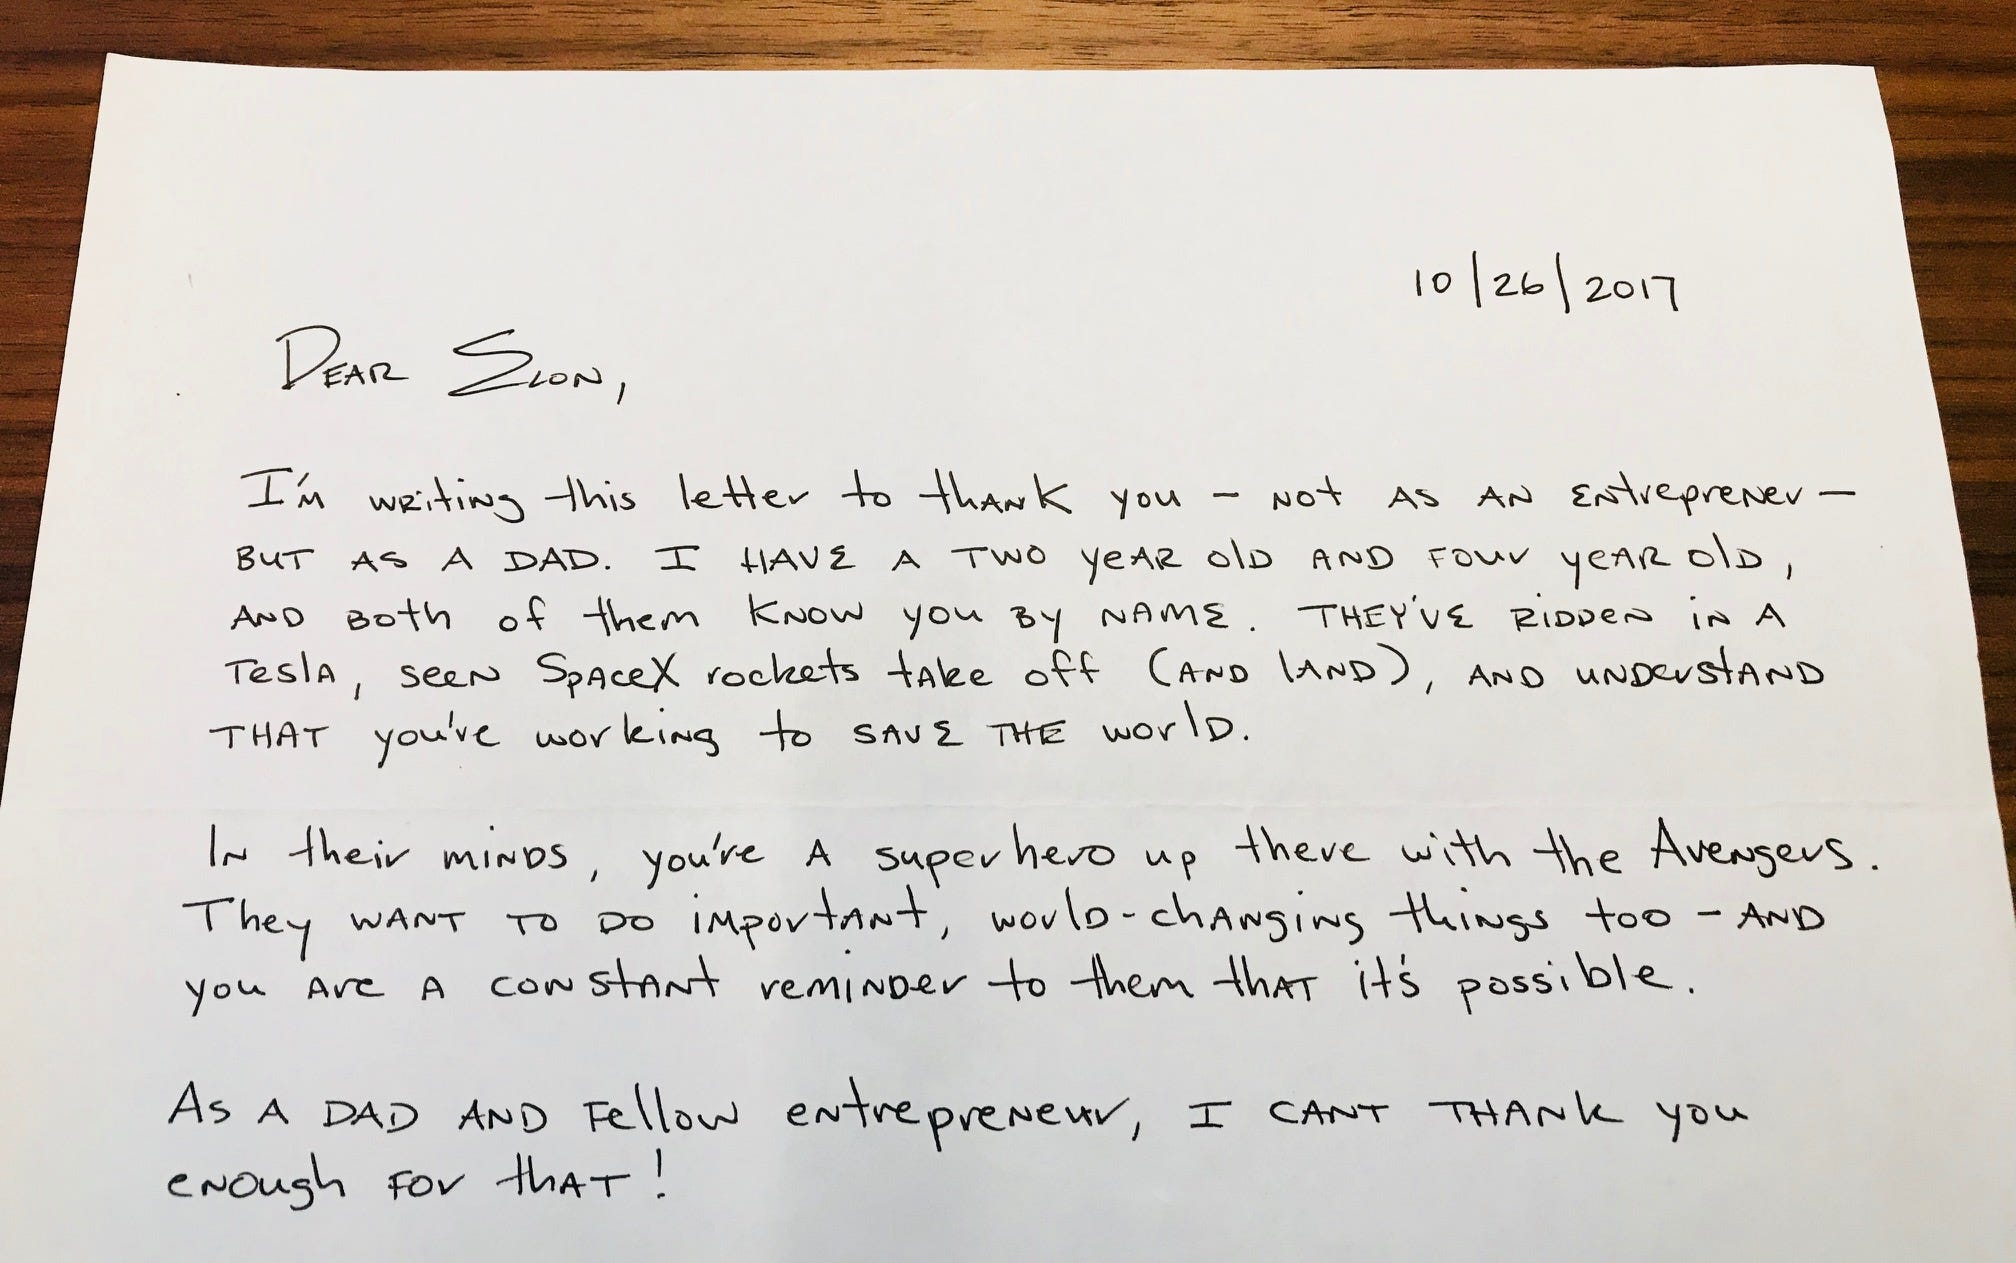 10/26/2017
Dear Elon,
I'm writing this letter to thank you - not as an entreprener -
BUT AS A DAD. I HAVE A TWO year old AND four year old,
AND Both of them KNOW you BY NAME. THEY'VE RIDDEN in A
Tesla, seen SpaceX rockets take off (AND lAND), AND UNDerstAND
THAT you're working to SAVE THE world.
In their minds, you're A superhero up there with the Avengers.
They WANT TO DO important, world-changing things too - AND
you are A constant reminder to them that it's possible.
As A DAD AND Fellow entrepreneur, I CANT THANk you
enough for that!